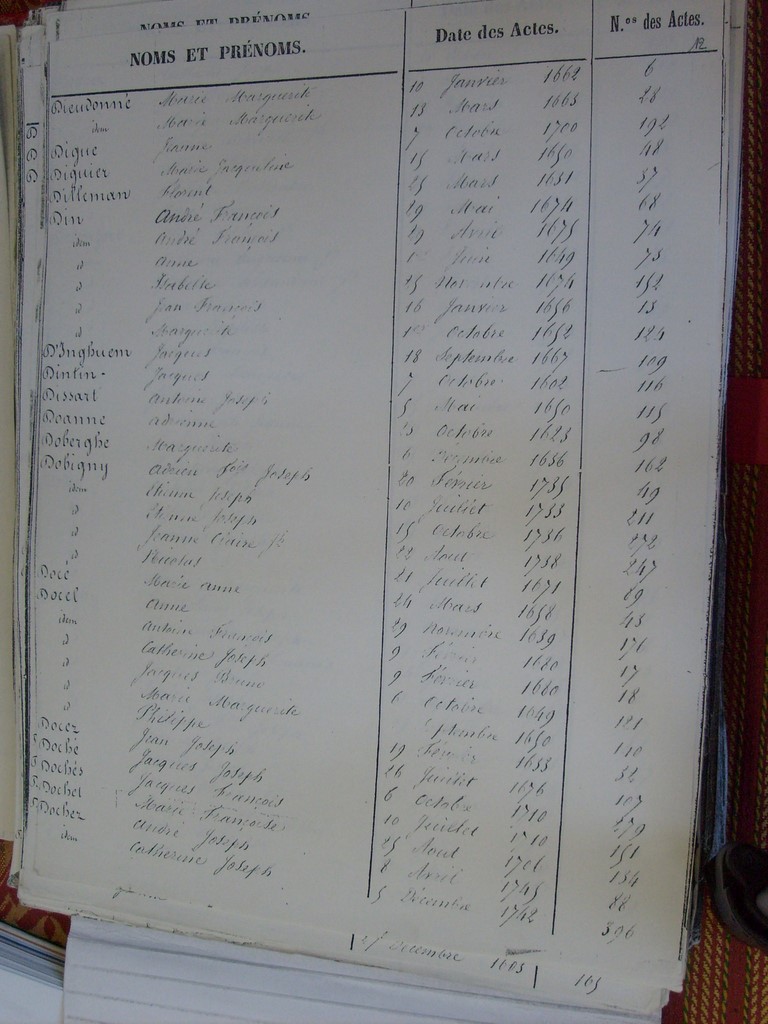 NOMS ET PRÉNOMS
NOMS ET PRÉNOMS. Date des Actes. N.os des Actes.
12
Dieudonné Marie Marguerite 10 Janvier 1662 6
idem Marie Marguerite 13 Mars 1663 28
Dique Jeanne 7 Octobre 1700 192
Diquier Marie Jacqueline 15 Mars 1650 48
Dilleman Florent 25 Mars 1631 37
Din André François 29 Mai 1674 68
idem André François 29 Avril 1675 74
d Anne 1er Juin 1649 73
d Isabelle 25 Novembre 1674 152
d Jean François 16 Janvier 1656 13
d Marguerite 1er Octobre 1652 124
D'Inghuem Jacques 18 Septembre 1667 109
Dintin - Jacques 7 Octobre 1602 116
Dissart Antoine Joseph 5 Mai 1650 115
Doanne Adrienne 23 Octobre 1623 98
Doberghe Marguerite 6 Decembre 1636 162
Dobigny Adrien Fois Joseph 20 Février 1735 49
idem Etienne Joseph 10 Juillet 1733 211
d Etienne Joseph 15 Octobre 1736 272
d Jeanne Claire Jh 22 Aout 1738 247
d Nicolas 21 Juillet 1671 89
Docé Marie Anne 24 Mars 1658 43
Docel Anne 29 Novembre 1639 176
idem Antoine François 9 Février 1680 17
d Catherine Joseph 9 Février 1680 18
d Jacques Bruno 6 Octobre 1649 121
d Marie Marguerite ptembre 1650 110
d Philippe 19 Février 1653 32
Docez Jean Joseph 26 Juillet 1676 107
Doché Jacques Joseph 6 Octobre 1710 279
Dochés Jacques François 10 Juillet 1710 151
Dochet Marie Françoise 25 Aout 1706 134
Dochez André Joseph 2 Avril 1745 88
idem Catherine Joseph 5 Décembre 1742 396
27 Decembre 1603 165